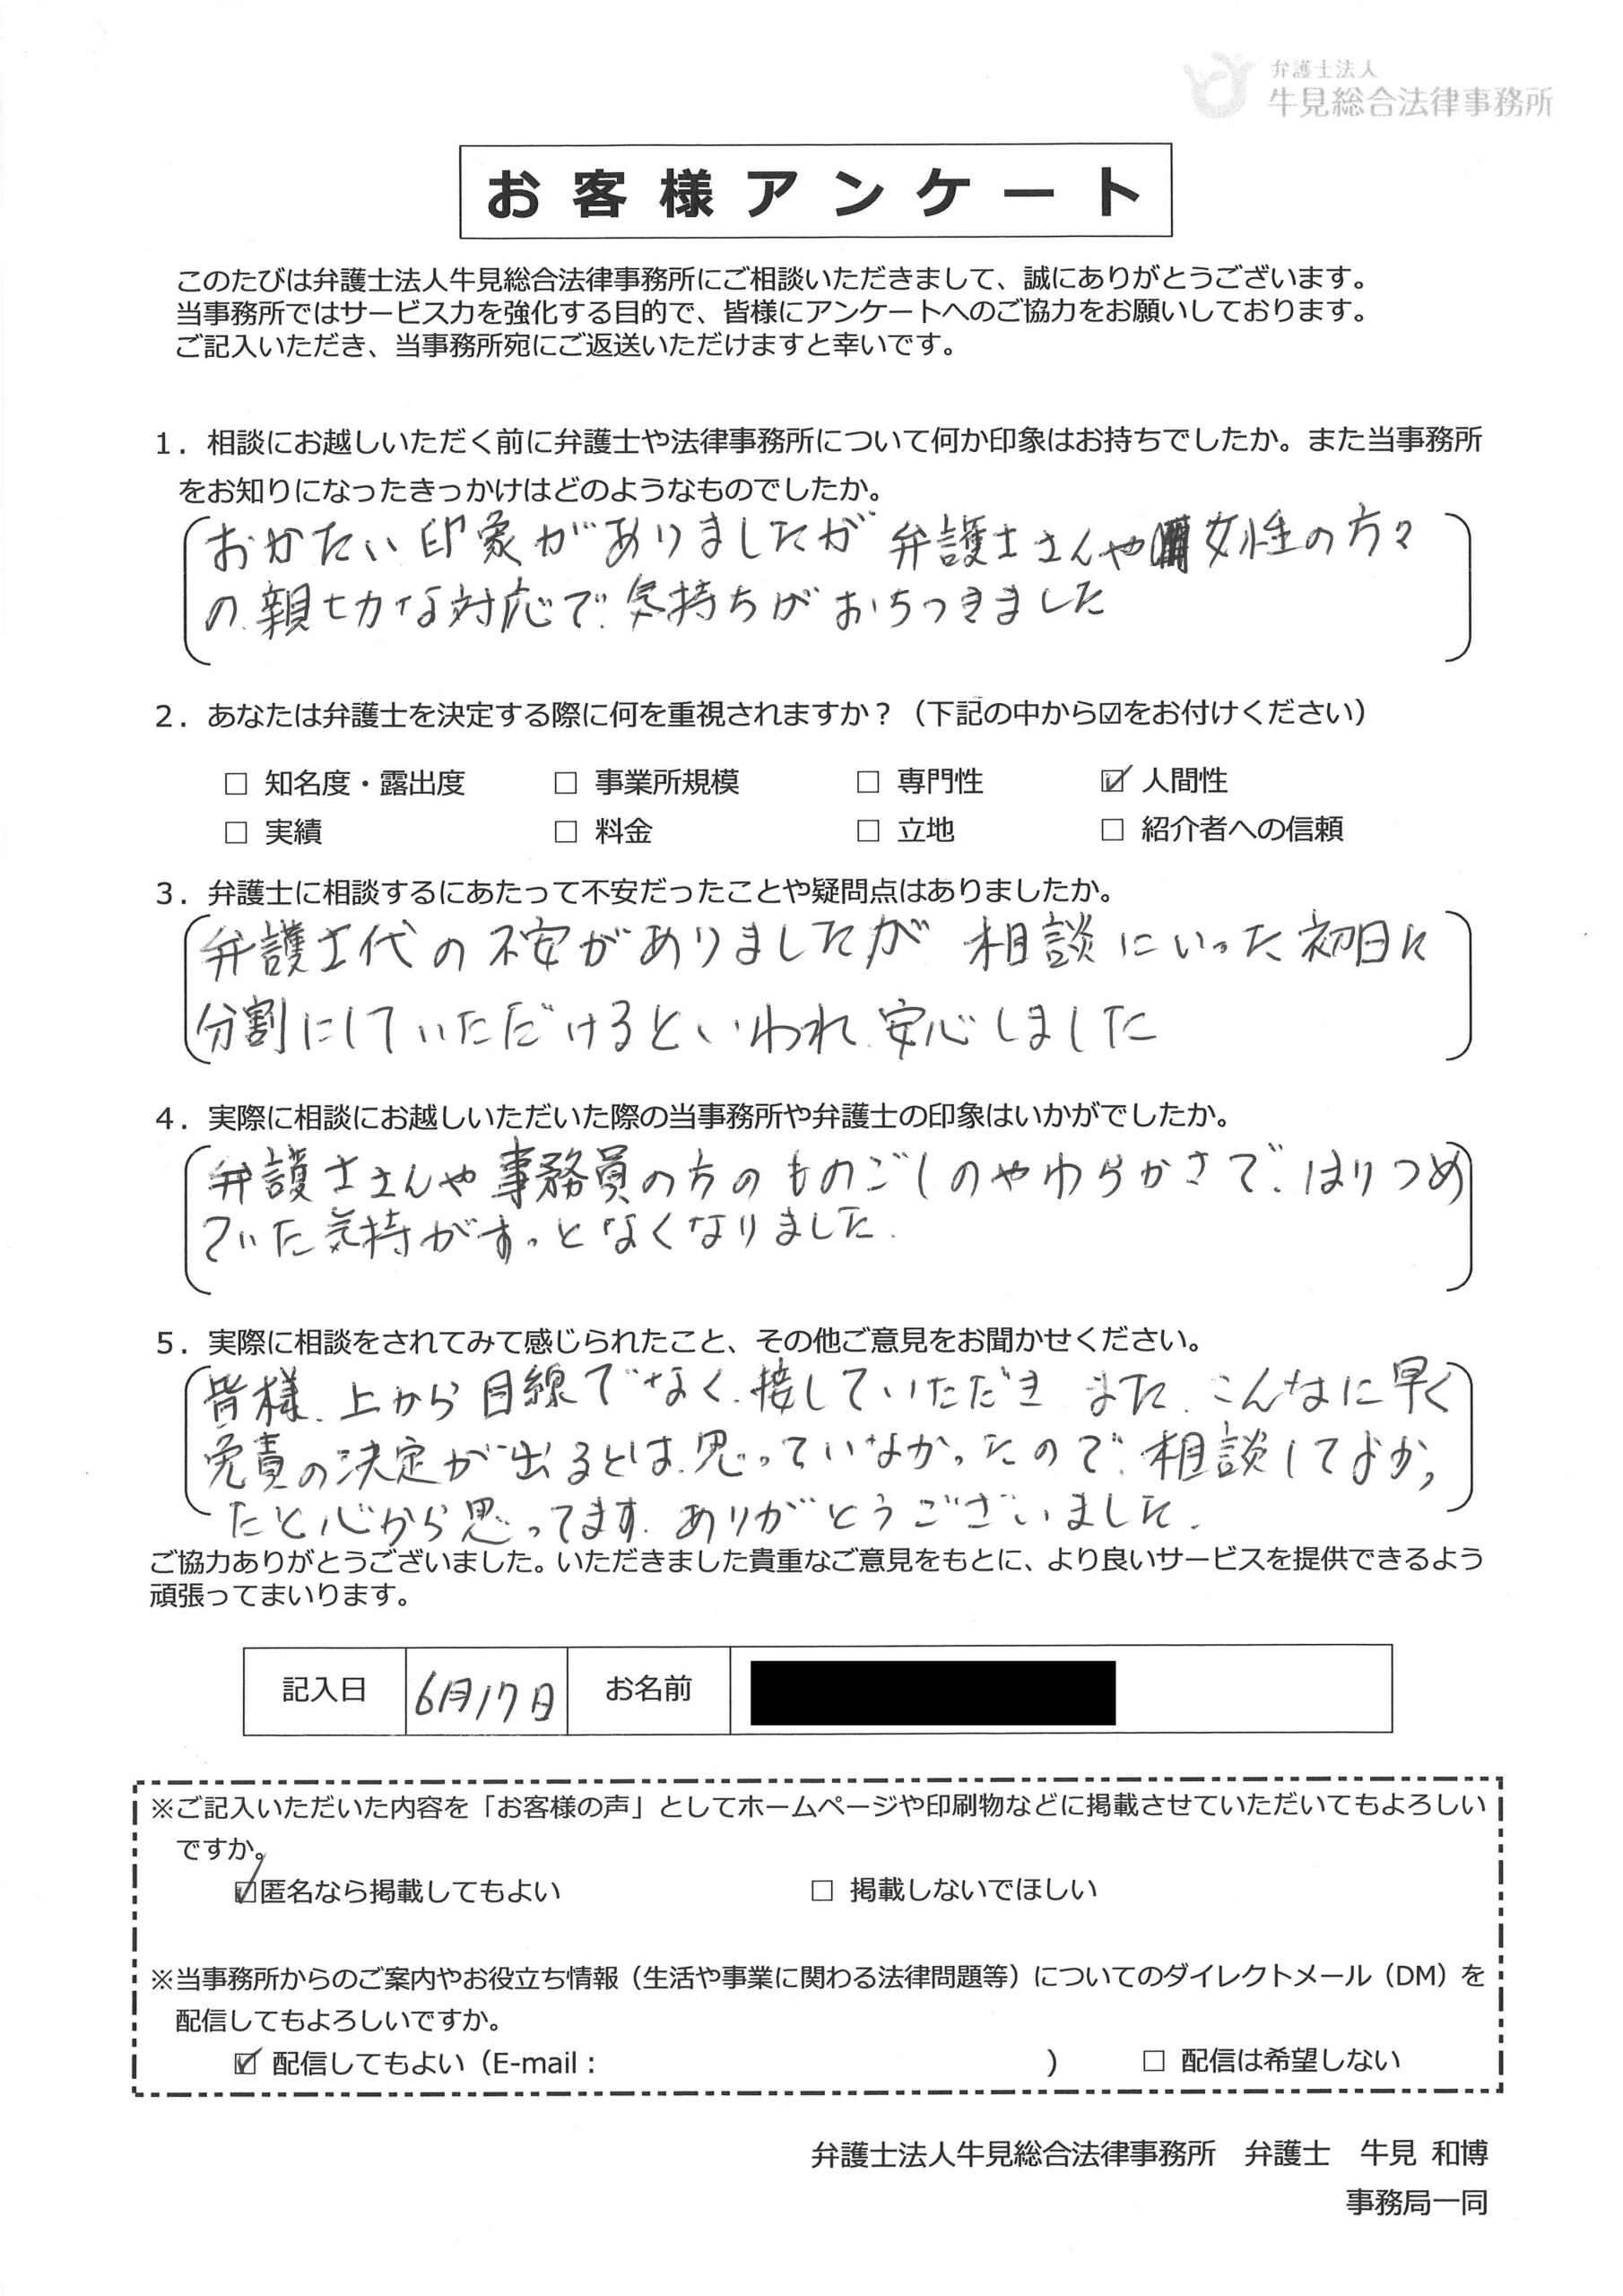 弁護士法人
牛見総合法律事務所
お客様アンケート
このたびは弁護士法人牛見総合法律事務所にご相談いただきまして、誠にありがとうございます。
当事務所ではサービス力を強化する目的で、皆様にアンケートへのご協力をお願いしております。
ご記入いただき、当事務所宛にご返送いただけますと幸いです。
1．相談にお越しいただく前に弁護士や法律事務所について何か印象はお持ちでしたか。また当事務所
をお知りになったきっかけはどのようなものでしたか。
おかたい印象がありましたが 弁護士さんや女性の方々
の、親切な対応で、気持ちがおちつきました
2．あなたは弁護士を決定する際に何を重視されますか？（下記の中から☑をお付けください）
□ 知名度・露出度 □ 事業所規模 □ 専門性 ☑ 人間性
□ 実績 □ 料金 □ 立地 □ 紹介者への信頼
3．弁護士に相談するにあたって不安だったことや疑問点はありましたか。
弁護士代の不安がありましたが 相談にいった初日に
分割にしていただけるといわれ、安心しました
4．実際に相談にお越しいただいた際の当事務所や弁護士の印象はいかがでしたか。
弁護士さんや事務員の方のものごしのやわらかさで、はりつめ
ていた気持がすっとなくなりました。
5．実際に相談をされてみて感じられたこと、その他ご意見をお聞かせください。
皆様、上から目線でなく、接していただき また、こんなに早く
免責の決定が出るとは、思っていなかったので、相談してよかっ
たと心から思ってます。ありがとうございました。
ご協力ありがとうございました。いただきました貴重なご意見をもとに、より良いサービスを提供できるよう
頑張ってまいります。
記入日 6月17日 お名前
※ご記入いただいた内容を「お客様の声」としてホームページや印刷物などに掲載させていただいてもよろしい
ですか。
☑匿名なら掲載してもよい □ 掲載しないでほしい
※当事務所からのご案内やお役立ち情報（生活や事業に関わる法律問題等）についてのダイレクトメール（DM）を
配信してもよろしいですか。
☑ 配信してもよい（E-mail： ） □ 配信は希望しない
弁護士法人牛見総合法律事務所 弁護士 牛見 和博
事務局一同